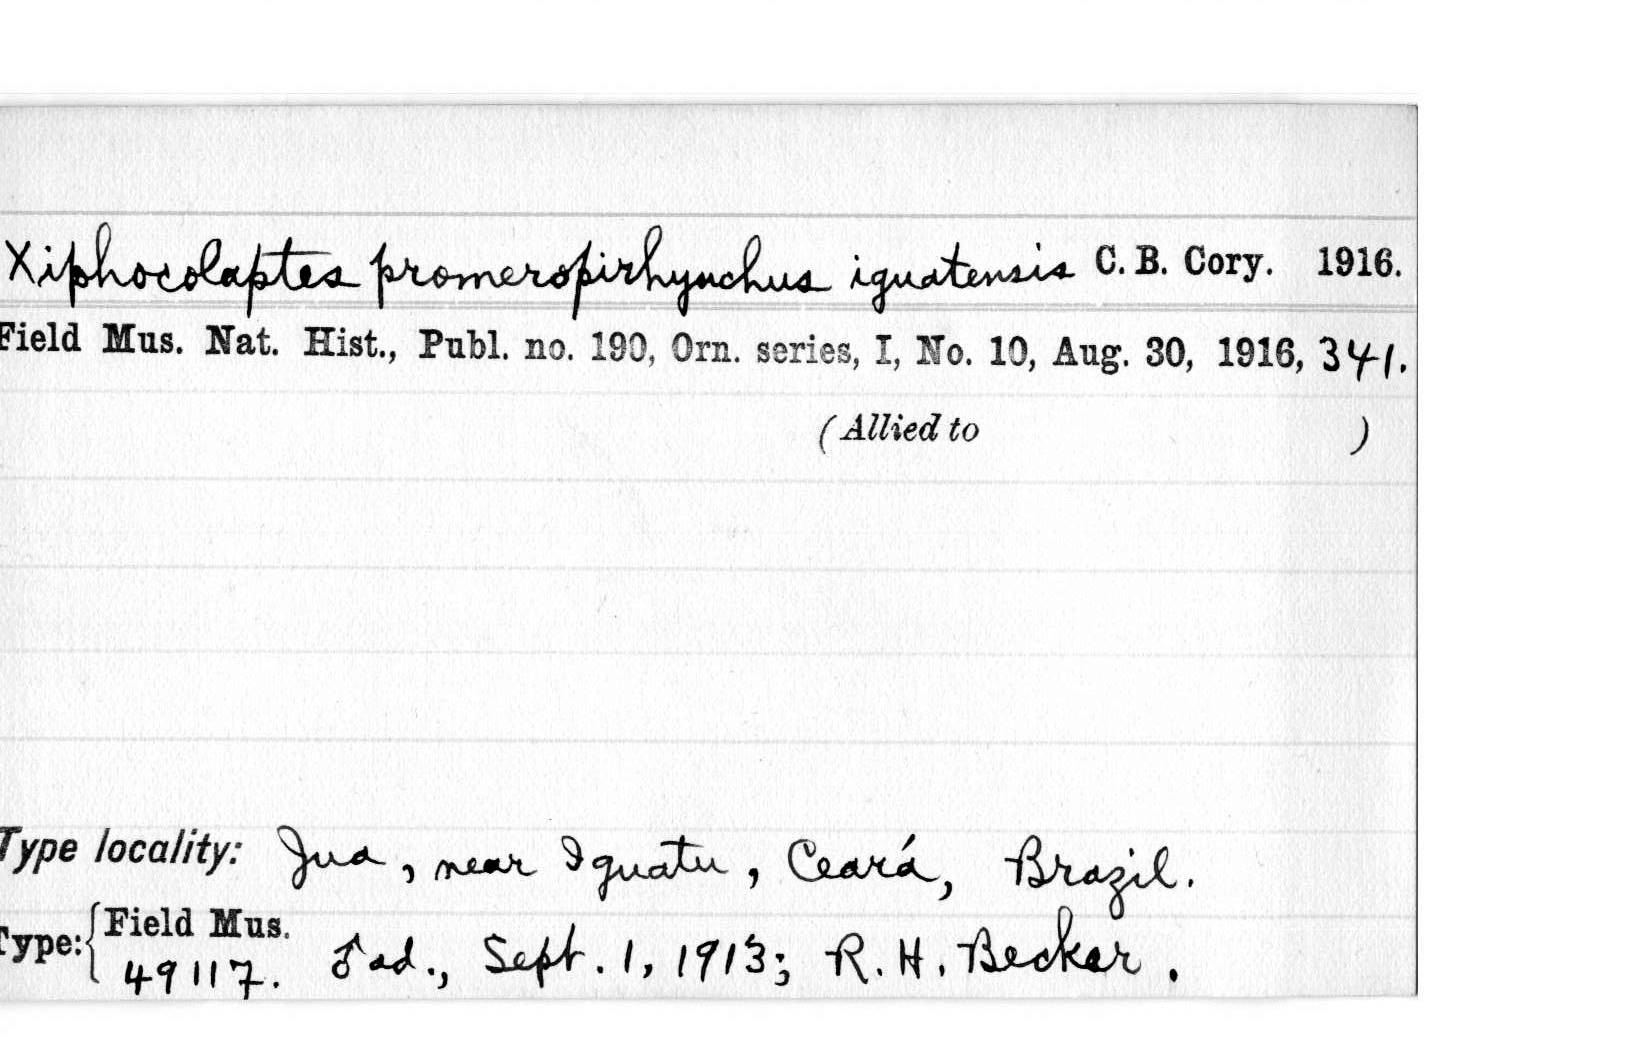 Xiphocolaptes promeropirhynchus iguatensis C. B. Cory. 1916.
Field Mus. Nat. Hist., Publ. no. 190, Orn. series, I, No. 10, Aug. 30, 1916, 341.
(Allied to )
Type locality: Jua, near Iguatu, Ceará, Brazil.
Type: { Field Mus.
49117. ♂ ad., Sept. 1, 1913; R. H. Becker.